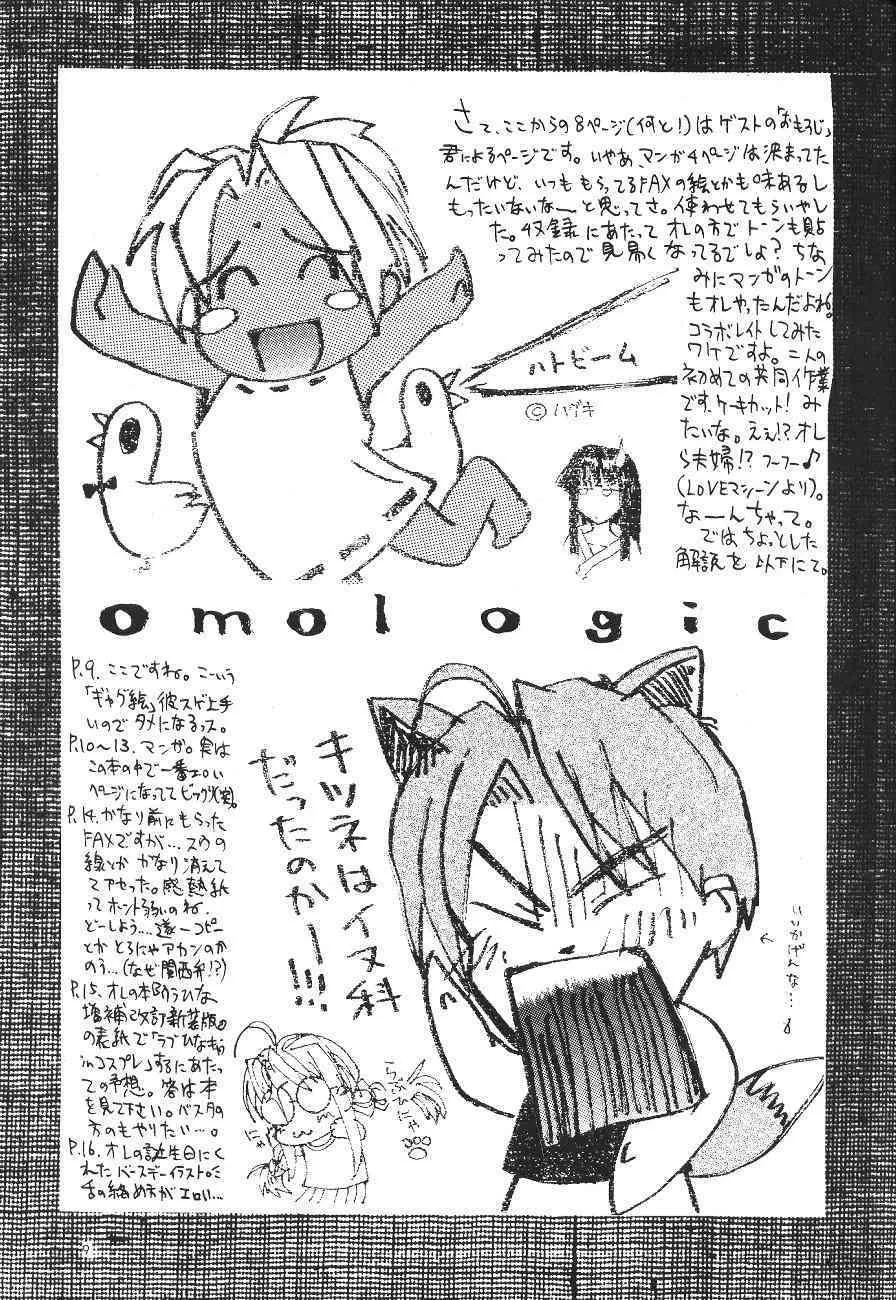 さて、ここからの8ページ(何と!)はゲストの「おもろじ」
君によるページです。いやあ、マンガ4ページは決まってた
んだけど、いつももらってるFAXの絵とかも味あるし
もったいないなーと思ってさ。使わせてもらいやし
た。収録にあたってオレの方でトーンも貼
ってみたので見易くなってるでしょ?ちな
みにマンガのトーン
もオレやったんだよね。
コラボレイトしてみた
ワケですよ。二人の
初めての共同作業
です。ケーキカット!み
たいな。えぇ!?オレ
ら夫婦!?フーフー♪
(LOVEマシーンより)。
なーんちゃって。
ではちょっとした
解説を以下にて。
ハトビーム
©ハヅキ
omologic
P.9. ここですね。こーいう
「ギャグ絵」彼スゲ上手
いのでタメになるっス。
P.10〜13. マンガ。実は
この本の中で一番エロい
ページになっててビックリ(笑)。
P.14. かなり前にもらった
FAXですが…スウの
線とかかなり消えて
てアセった。感熱紙
ってホント弱いのね、
どーしよう…逐一コピー
とかとらにゃアカンのか
のう…(なぜ関西弁!?)
P.15. オレの本「らびな
増補改訂新装版」
の表紙で「ラブひなギャル
inコスプレ」するにあた
っての予想。答は本
を見て下さい。ベスタの
方のもやりたい…。
P.16. オレの誕生日にく
れたバースデーイラスト。
舌の絡め方がエロい…
キツネはイヌ科
だったのかー!!!
いいかげんな…
らぶひにゃ
にゃ
9